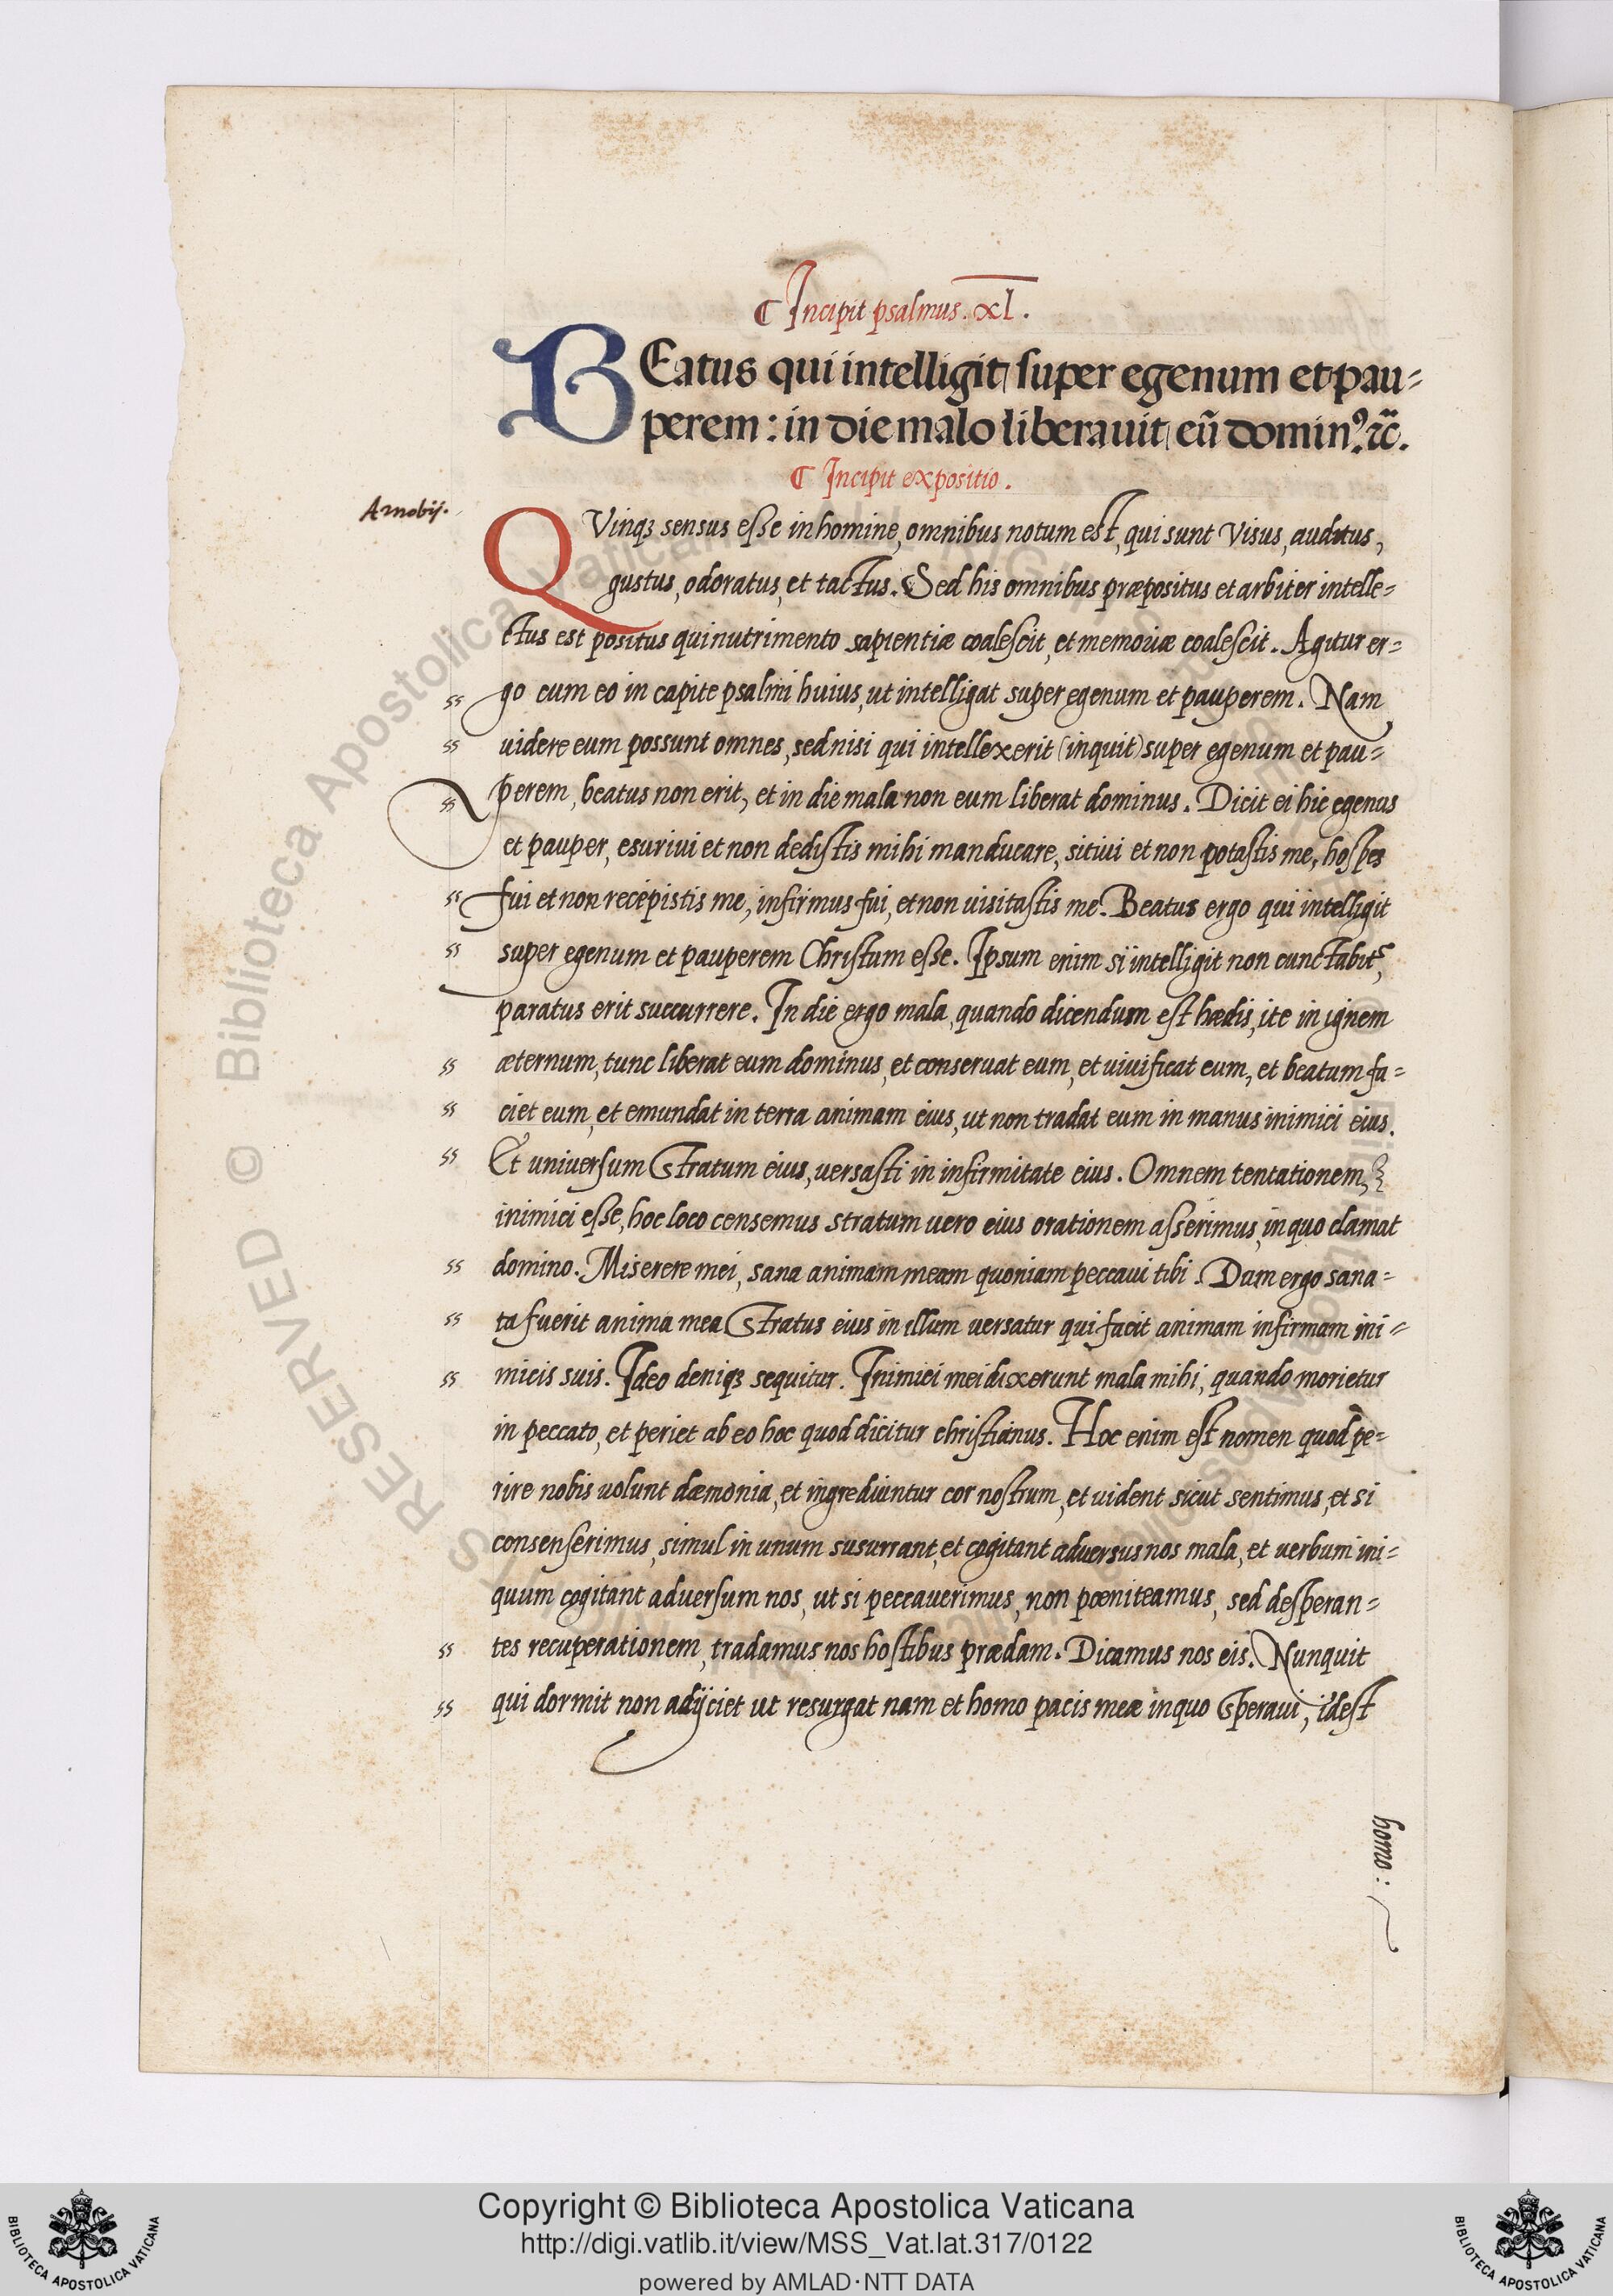 ¶ Incipit psalmus. xl.
BEatus qui intelligit super egenum et pau=
perem: in die malo liberauit eũ domin⁹. ⁊c̃.
¶ Incipit expositio.
Arnobij.
QVinqꝫ sensus esse in homine, omnibus notum est, qui sunt Visus, auditus,
gustus, odoratus, et tactus. Sed his omnibus præpositus et arbiter intelle=
ctus est positus qui nutrimento sapientiæ coalescit, et memoriæ coalescit. Agitur er=
go cum eo in capite psalmi huius, ut intelligat super egenum et pauperem. Nam
uidere eum possunt omnes, sed nisi qui intellexerit (inquit) super egenum et pau=
perem, beatus non erit, et in die mala non eum liberat dominus. Dicit ei hic egenus
et pauper, esurivi et non dedistis mihi manducare, sitivi et non potastis me, hospes
fui et non recepistis me, infirmus fui, et non uisitastis me. Beatus ergo qui intelligit
super egenum et pauperem Christum esse. Ipsum enim si intelligit non cunctabit̃,
paratus erit succurrere. In die ergo mala, quando dicendum est hædis, ite in ignem
æternum, tunc liberat eum dominus, et conseruat eum, et uiuificat eum, et beatum fa=
ciet eum, et emundat in terra animam eius, ut non tradat eum in manus inimici eius.
Et universum stratum eius, versasti in infirmitate eius. Omnem tentationem,
inimici esse, hoc loco censemus stratum uero eius orationem asserimus, in quo clamat
domino. Miserere mei, sana animam meam quoniam peccaui tibi. Dum ergo sana=
ta fuerit anima mea stratus eius in illum uersatur qui facit animam infirmam ini=
micis suis. Ideo deniqꝫ sequitur. Inimici mei dixerunt mala mihi, quando morietur
in peccato, et periet ab eo hoc quod dicitur christianus. Hoc enim est nomen quod pe=
rire nobis uolunt dæmonia, et ingrediuntur cor nostrum, et uident sicut sentimus, et si
consenserimus, simul in unum susurrant, et cogitant adversus nos mala, et uerbum ini=
quum cogitant adversum nos, ut si peccauerimus, non pœniteamus, sed desperan=
tes recuperationem, tradamus nos hostibus prædam. Dicamus nos eis. Nunquit
qui dormit non adijciet ut resurgat nam et homo pacis meæ in quo speraui, idest
homo:
© Biblioteca Apostolica Vaticana
RESERVED
Copyright © Biblioteca Apostolica Vaticana
http://digi.vatlib.it/view/MSS_Vat.lat.317/0122
powered by AMLAD·NTT DATA
BIBLIOTECA APOSTOLICA VATICANA
BIBLIOTECA APOSTOLICA VATICANA